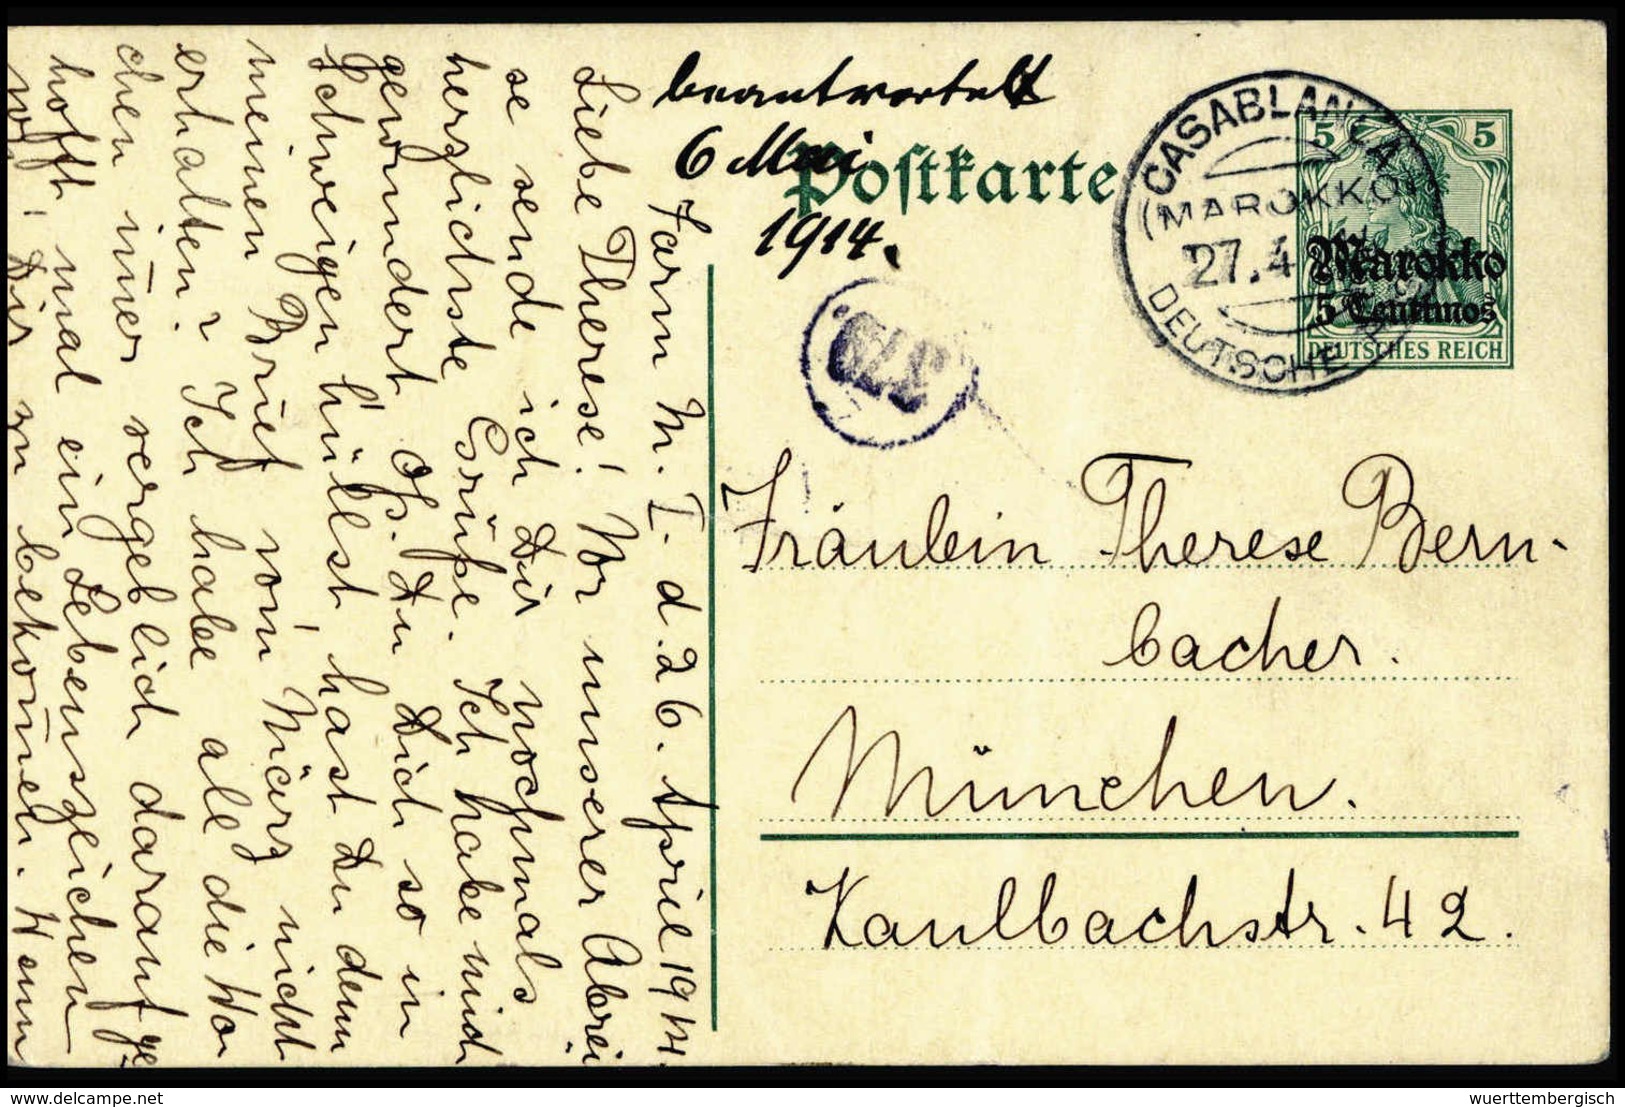 beantwortet
6 Mai
1914.
Postkarte
CASABLANCA
(MAROKKO)
27.4
DEUTSCHE
5 5
Marokko
5 Centimos
DEUTSCHES REICH
379
Fräulein Therese Bern-
bacher.
München.
Kaulbachstr. 42.
M. I. d. 26. April 1914.
Liebe Therese! Vor unserer Abrei
se sende ich Dir nochmals
herzlichste Grüße. Ich habe mich
gewundert Ob Du Dich so in
Schweigen hüllst, hast Du denn
meinen Brief vom März nicht
erhalten? Ich habe all die Wo
chen im̄er vergeblich darauf ge
hofft mal ein Lebenszeichen
von Dir zu bekom̄en. Wenn
delcampe.net
wuerttembergisch